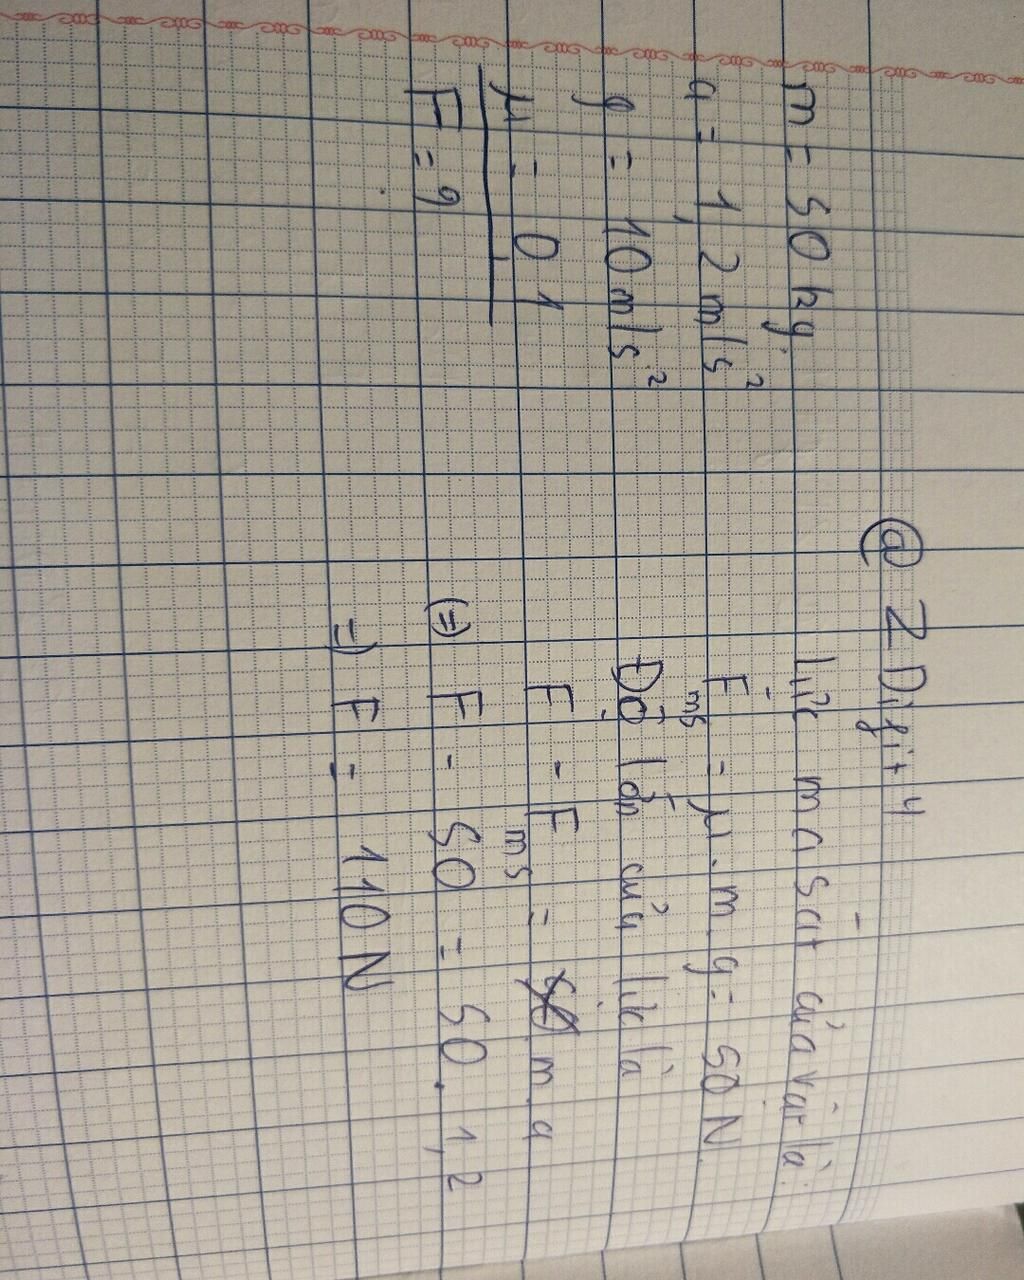 @ 2Digit4
m = 50 kg.
a = 1,2 m/s²
g = 10 m/s²
μ = 0,1
F = ?
Lực ma sát của vật là:
Fms = μ.m.g = 50 N.
Độ lớn của lực là
F - Fms = m.a
(=) F - 50 = 50.1,2
=) F = 110 N